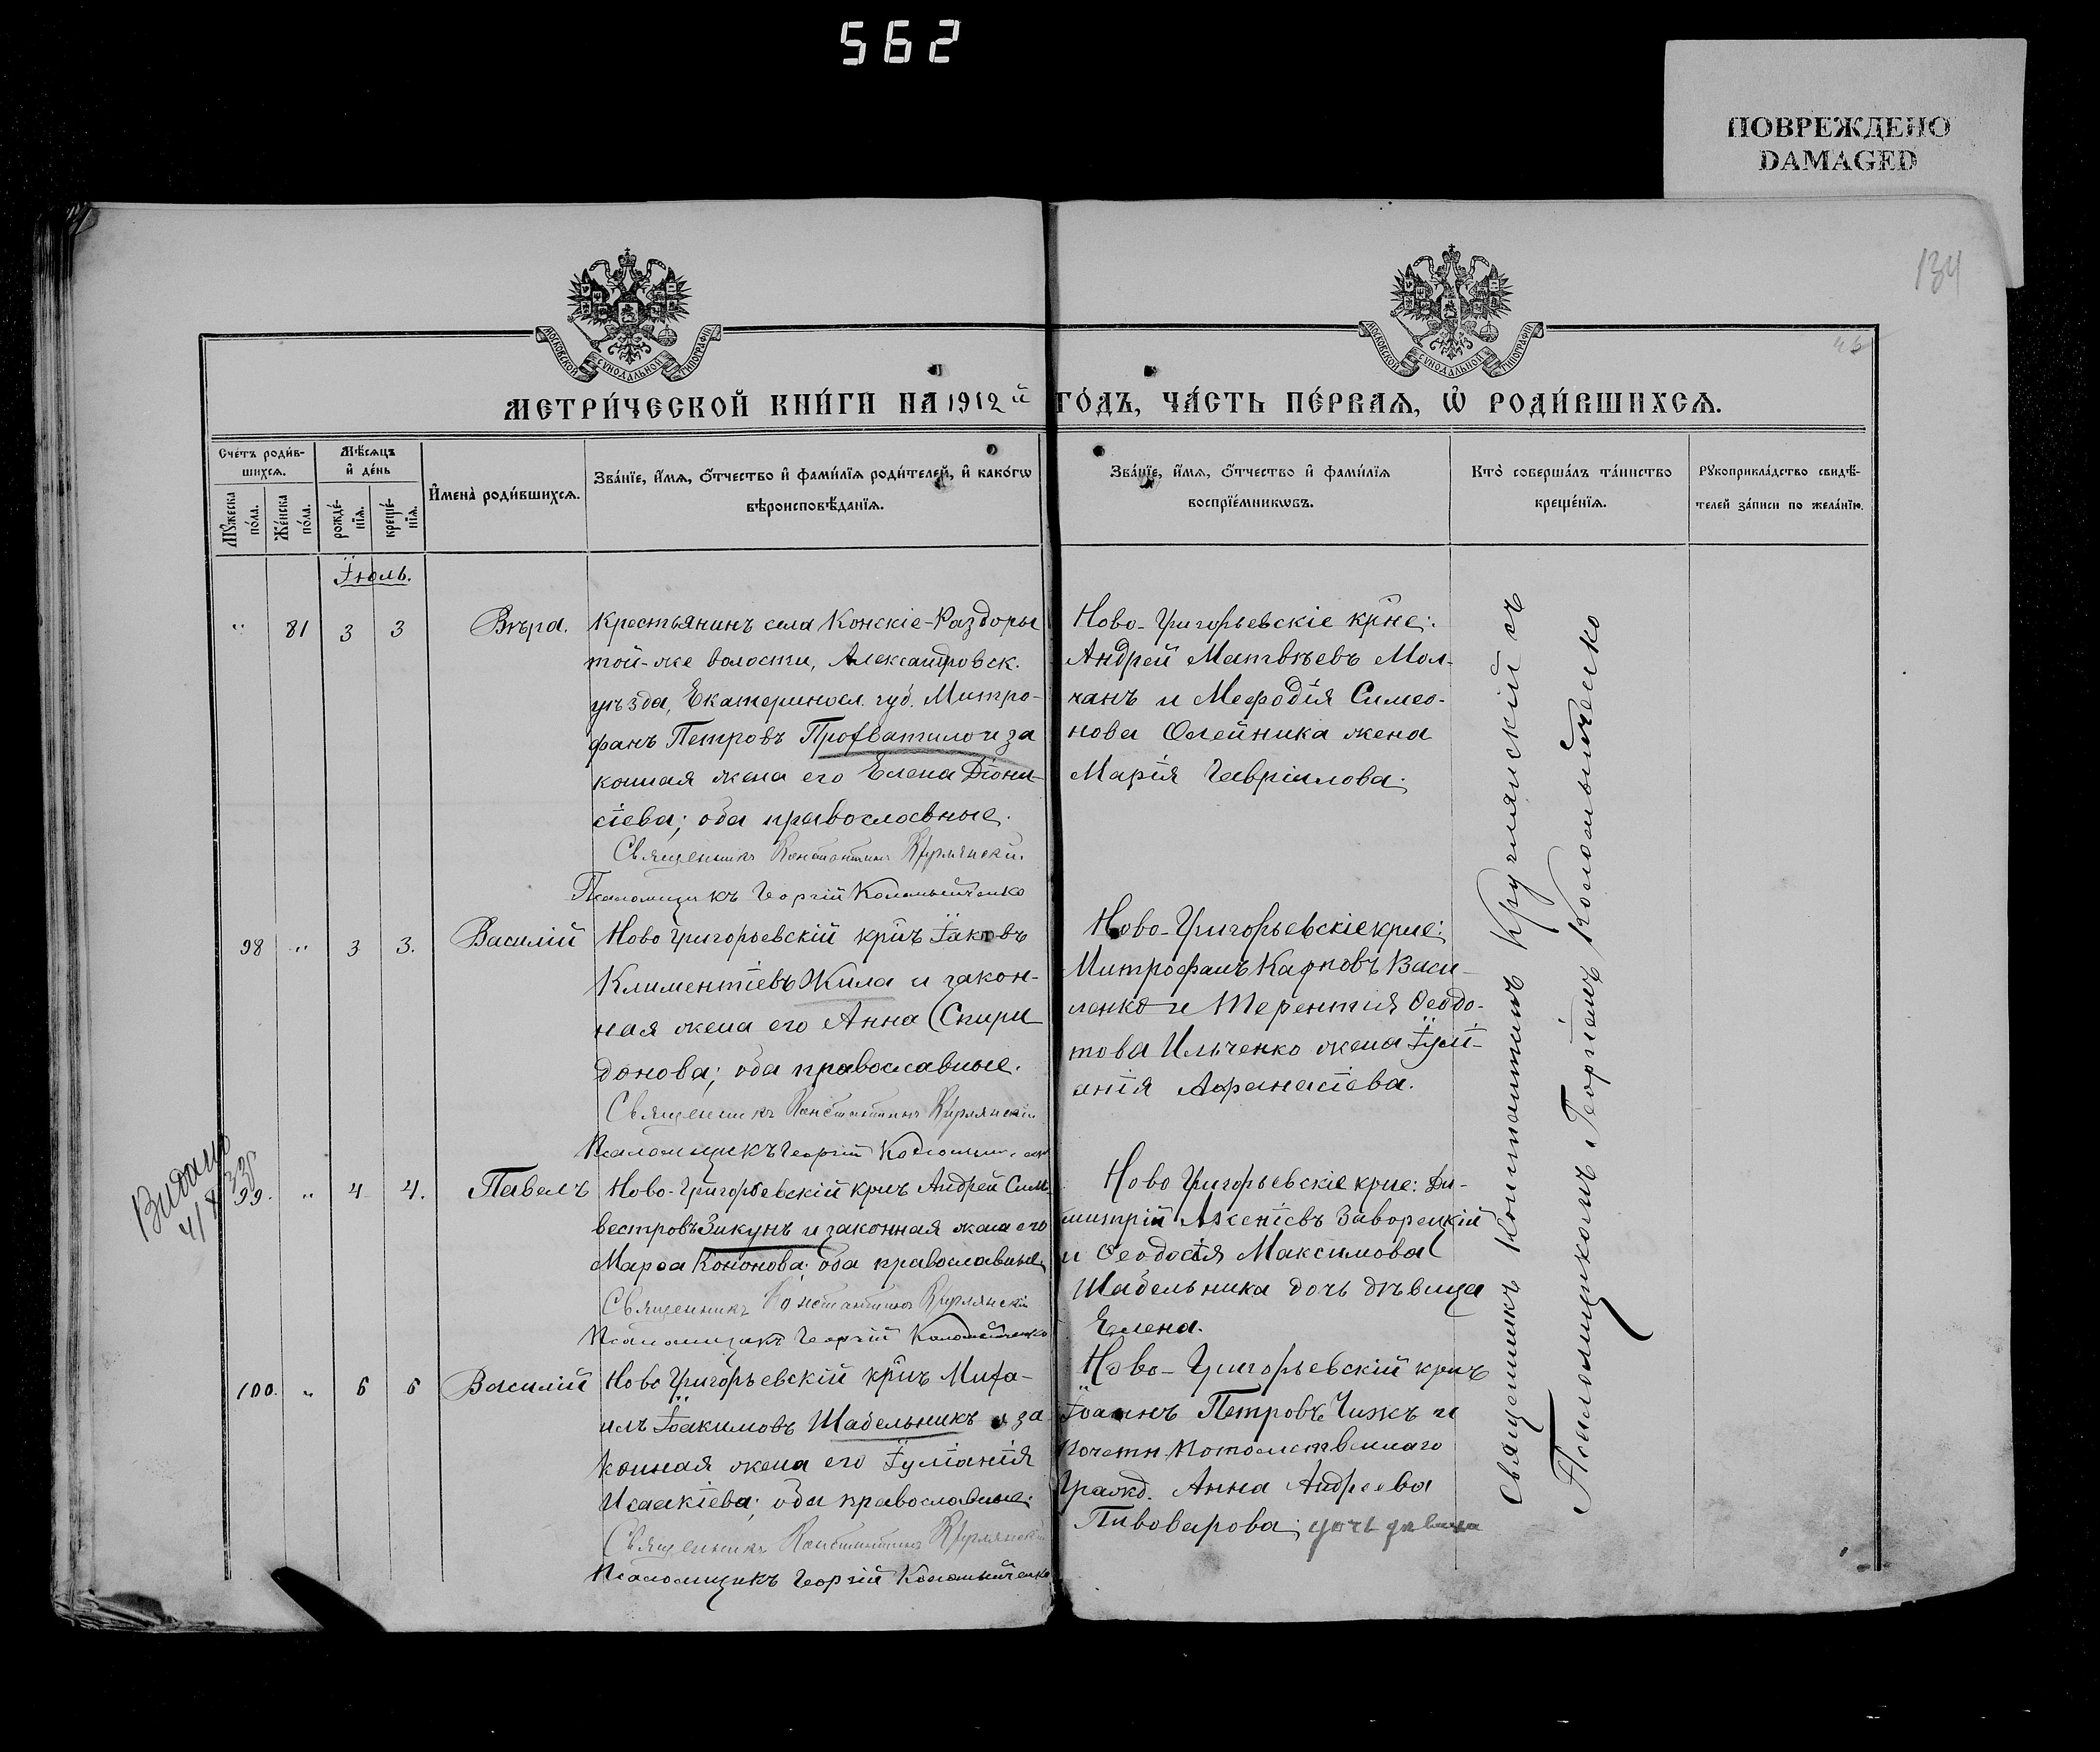 562
ПОВРЕЖДЕНО
DAMAGED
134
46
МОСКОВСКОЙ СѴНОДАЛЬНОЙ ТИПОГРАФІИ
МОСКОВСКОЙ СѴНОДАЛЬНОЙ ТИПОГРАФІИ
МЕТРИ́ЧЕСКОЙ КНИ́ГИ НА 1912й ГО́ДЪ, ЧА́СТЬ ПЕ́РВАЯ, Ѡ҆ РОДИ́ВШИХСЯ.
Сче́тъ роди́в-
шихся.
Мѣ́сяцъ
и҆ де́нь
Мꙋ́жеска
по́ла.
Же́нска
по́ла.
рожде́-
нїя.
креще́-
нїя.
И҆мена̀ роди́вшихся.
Зва́нїе, и҆́мя, ѻ҆́тчество и҆ фами́лїя роди́телей, и҆ како́гѡ
вѣроисповѣ́данїя.
Зва́нїе, и҆́мя, ѻ҆́тчество и҆ фами́лїя
воспрїе́мникѡвъ.
Кто̀ соверша́лъ та́инство
креще́нїя.
Рꙋкоприкла́дство свидѣ́-
телей за́писи по жела́нїю.
Іюль.
" 81 3 3 Вѣра.
Крестьянинъ села Конскіе-Раздоры
той-же волости, Александровск.
уѣзда, Екатериносл. губ. Митро-
фанъ Петровъ и за
конная жена его Елена Діони-
сіева; оба православные.
Священникъ Константинъ Круглянскій.
Псаломщикъ Георгій Коломыйченко
Ново-Григорьевскіе кр̃не:
Андрей Матвѣевъ Мол-
чанъ и Мефодія Симео-
нова Олейника жена
Марія Гавріилова.
98 " 3 3. Василій
Ново Григорьевскій кр̃нъ Іаковъ
Климентіевъ Жила и закон-
ная жена его Анна Спири-
донова; оба православные.
Священникъ Константинъ Круглянскій
Псаломщикъ Георгій
Ново-Григорьевскіе крне:
Митрофанъ Карповъ Васи-
ленко и Терентия Ѳеодо-
това Ильченко жена Іулі-
анія Афанасіева.
Видано
4/8 35
99. " 4 4. Павелъ
Ново-Григорьевскій крнъ Андрей Сил-
вестровъ Зикунъ и законная жена его
Марѳа Кононова; оба православные.
Священникъ Константинъ Круглянскій
Псаломщикъ Георгій Коломыйченко
Ново Григорьевскіе крне: Ди-
митрій Аѯеніевъ Заворецкій
и Ѳеодосія Максимова
Шабельника дочь дѣвица
Елена.
100. " 6 6 Василій
Ново Григорьевскій кр̃нъ Миха-
илъ Іоакимовъ Шабельникъ и за
конная жена его Іуліанія
Исаакіева; оба православные.
Священникъ Константинъ Круглянскій
Псаломщикъ Георгій Коломыйченко
Ново-Григорьевскій крнъ
Іоаннъ Петровъ Чижъ и
Почетн. Потомственнаго
Гражд. Анна Андреева
Пивоварова; дочь девица
Священникъ Константинъ Круглянскій съ
Псаломщикомъ Георгіемъ Коломыйченко